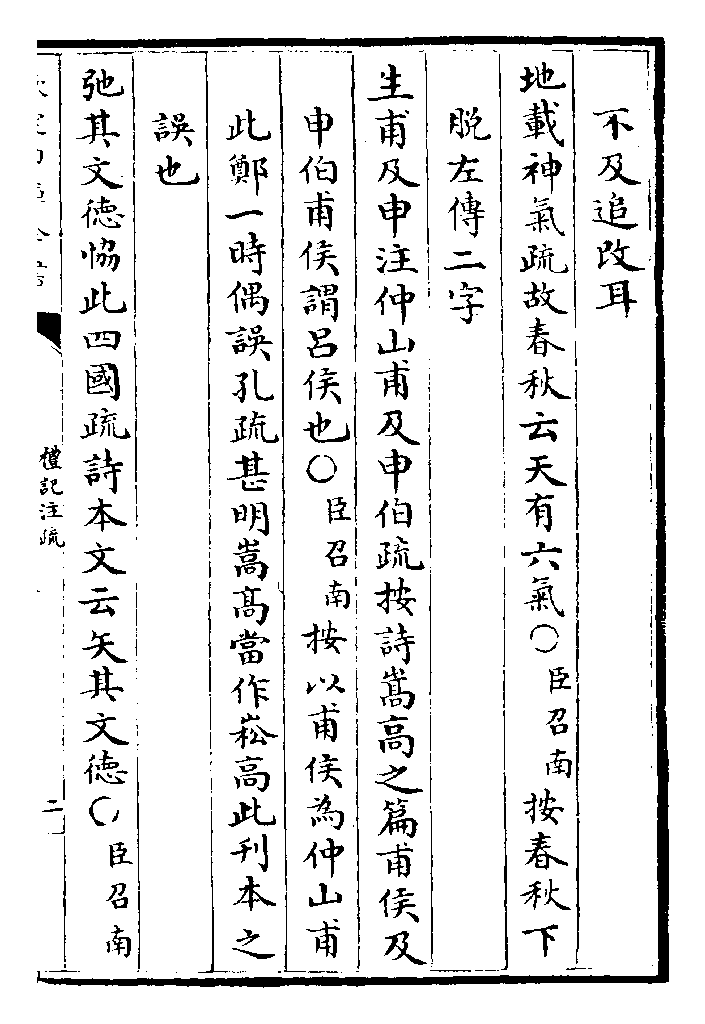 不及追改耳
地載神氣疏故春秋云天有六氣〇臣召南按春秋下
脱左傳二字
生甫及申注仲山甫及申伯疏按詩嵩高之篇甫侯及
申伯甫侯謂吕侯也〇臣召南按以甫侯為仲山甫
此鄭一時偶誤孔疏甚明嵩髙當作崧高此刊本之
誤也
弛其文徳恊此四國疏詩本文云矢其文徳〇臣召南
禮記注疏
二